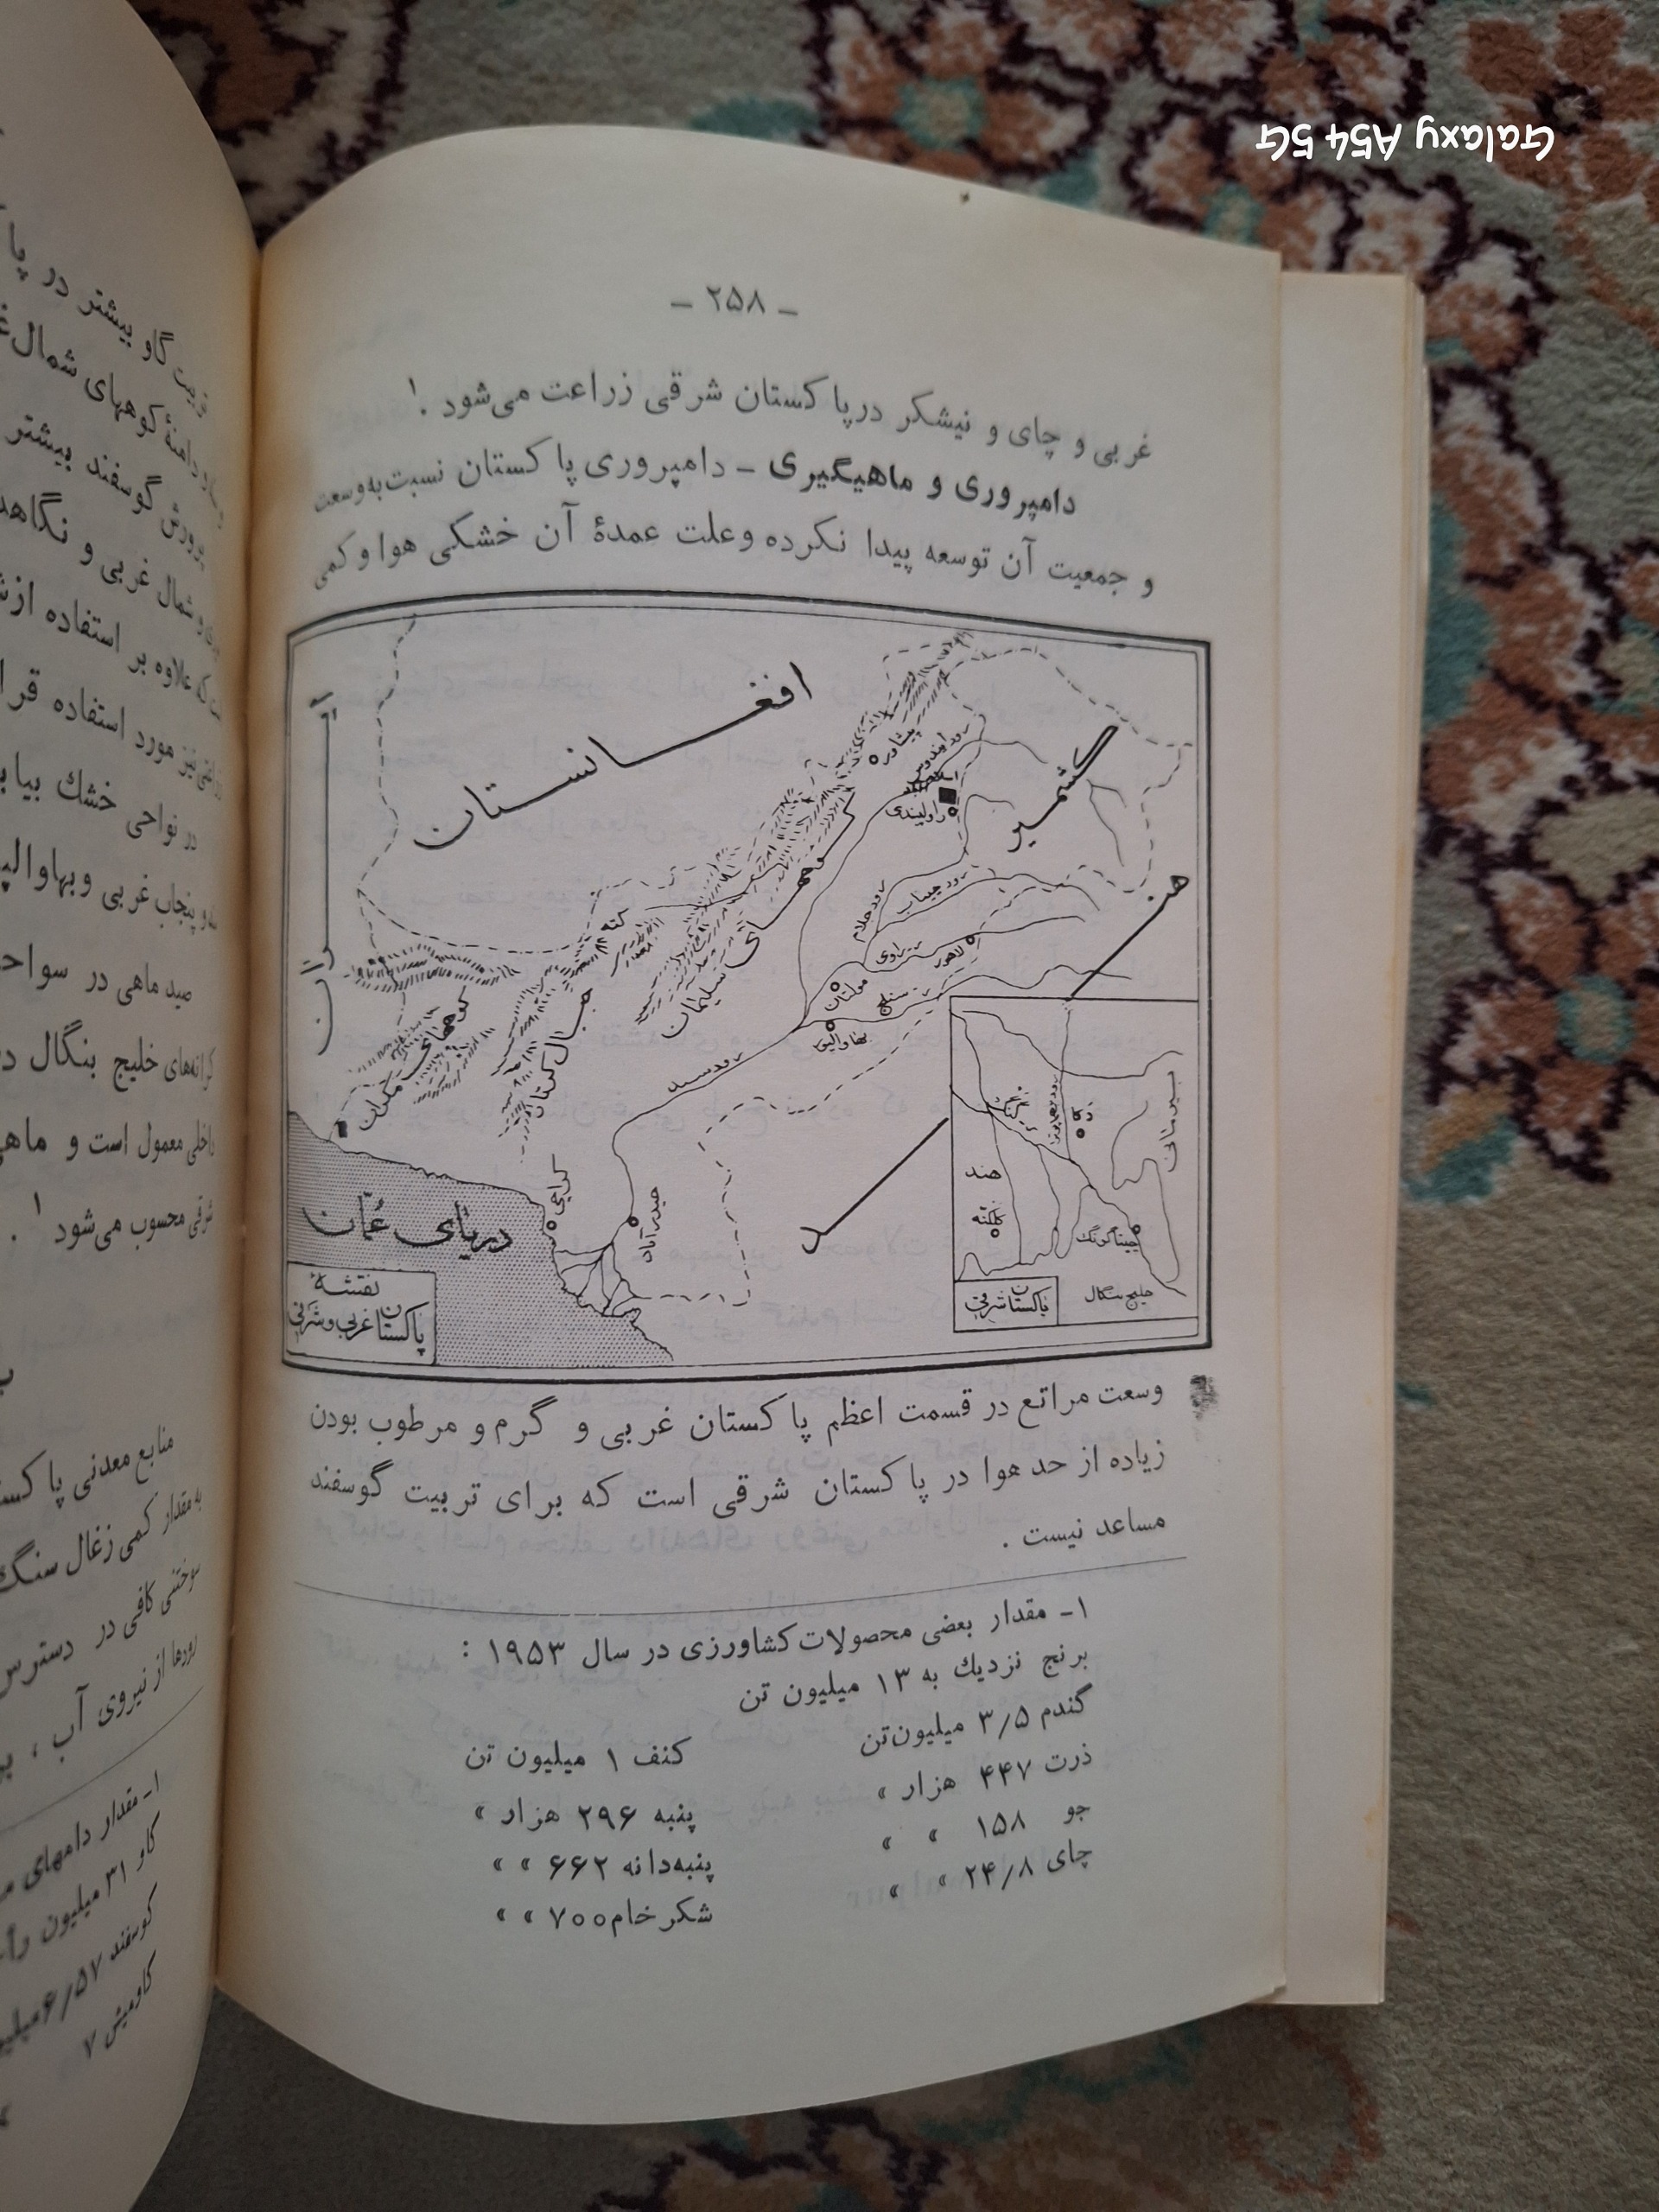 Galaxy A54 5G
ـ ۲۵۸ ـ
غربی و چای و نیشکر درپاکستان شرقی زراعت می‌شود .۱
دامپروری و ماهیگیری ـ دامپروری پاکستان نسبت به‌وسعت
و جمعیت آن توسعه پیدا نکرده وعلت عمدهٔ آن خشکی هوا و کمی
افغانستان
ایران
کشمیر
هند
پیشاور
رود ایندوس
اسلام‌آباد
راولپندی
کوههای سلیمان
رود جلام
رود چیناب
راوی
لاهور
مولتان
بهاوالپور
کته
کوههای مکران
جبال کرتار
رود سند
کراچی
حیدرآباد
دریای عمّان
نقشهٔ
پاکستان غربی و شرقی
دکا
هند
کلکته
چیتاگونگ
خلیج بنگال
پاکستان شرقی
وسعت مراتع در قسمت اعظم پاکستان غربی و گرم و مرطوب بودن
زیاده از حد هوا در پاکستان شرقی است که برای تربیت گوسفند
مساعد نیست .
۱ـ مقدار بعضی محصولات کشاورزی در سال ۱۹۵۳ :
برنج نزدیك به ۱۳ میلیون تن
گندم ۳/۵ میلیون‌تن
کنف ۱ میلیون تن
ذرت ۴۴۷ هزار »
پنبه ۲۹۶ هزار »
جو ۱۵۸ » »
پنبه‌دانه ۶۶۲ » »
چای ۲۴/۸ » »
شکر خام ۷۰۰ » »
گاو بیشتر در پا
دامنهٔ کوههای شمال
پرورش گوسفند بیشتر
شمال غربی و
که علاوه بر استفاده از
نیز مورد استفاده
در نواحی خشك
پنجاب غربی و بهاوالپ
صید ماهی در
کرانه‌های خلیج بنگال
داخلی معمول است و
شرقی محسوب می‌شود ۱ .
منابع معدنی
به مقدار کمی زغال سنگ
سوختنی کافی در
رودها از نیروی آب ،
۱ـ مقدار دامهای
گاو ۳۱ میلیون
گوسفند ۶/۵۷
گاومیش ۷